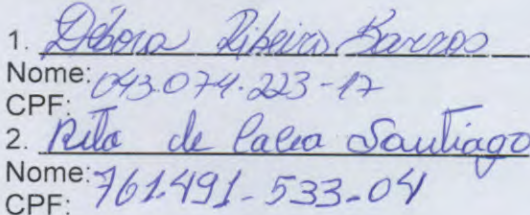 1. Débora Ribeiro Barros
Nome: 043.074.223-17
CPF:
2. Rita de Calea Santiago
Nome: 761.491-533-04
CPF: